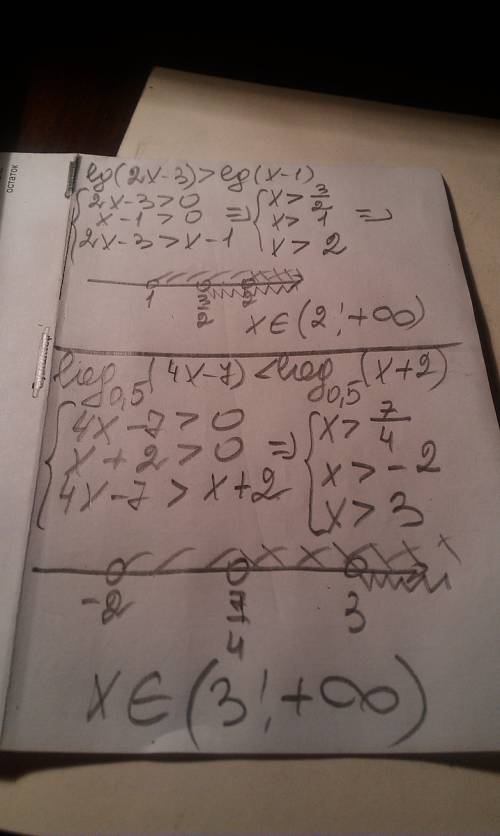 остаток
lg(2x-3)>lg(x-1)
{2x-3>0
x-1>0
2x-3>x-1
=>
{x>3/2
x>1
x>2
=>
1 3/2 2
x∈(2;+∞)
log0,5(4x-7)<log0,5(x+2)
{4x-7>0
x+2>0
4x-7>x+2
=>
{x>7/4
x>-2
x>3
-2 7/4 3
x∈(3;+∞)